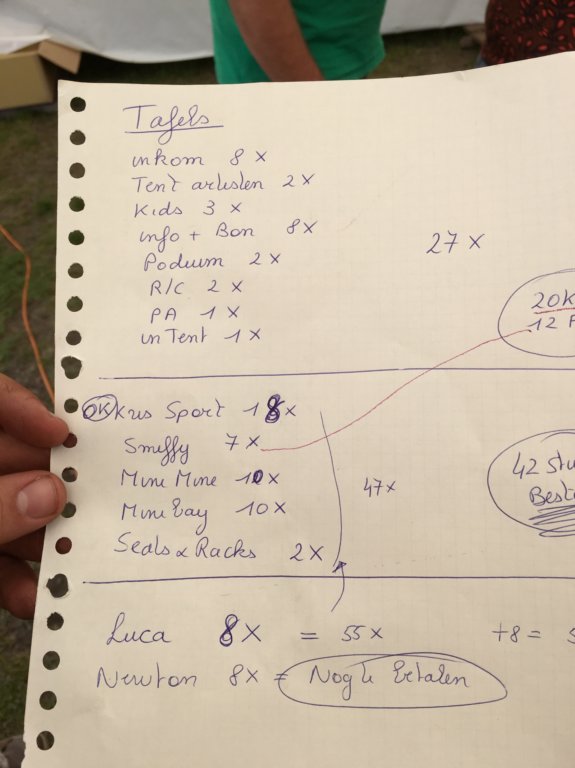 Tafels
inkom 8x
Tent artisten 2x
Kids 3x
info + Bon 8x
Podium 2x
R/C 2x
PA 1x
in Tent 1x
27x
20K
12
OK Kris Sport 18x
Smiffy 7x
Mini Mine 10x
Mini Eay 10x
Seals & Racks 2x
47x
42 Stu
Beste
Luca 8x = 55x +8 =
Newton 8x = Nog te Betalen